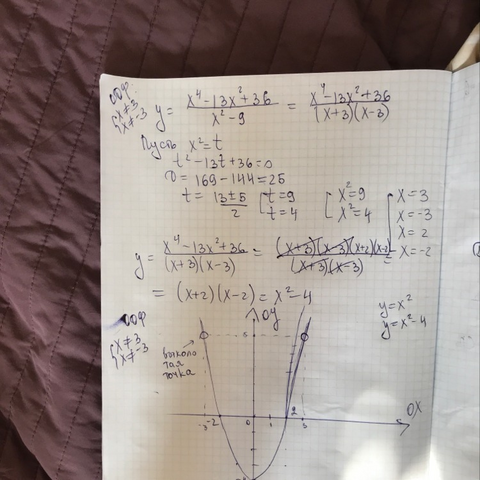 ООФ
{x≠3
{x≠-3
y = (x⁴-13x²+36)/(x²-9) = (x⁴-13x²+36)/((x+3)(x-3))
Пусть x²=t
t²-13t+36=0
D = 169-144=25
t = (13±5)/2 [t=9 [x²=9 [x=3
[t=4 [x²=4 [x=-3
[x=2
[x=-2
y = (x⁴-13x²+36)/((x+3)(x-3)) = ((x+3)(x-3)(x+2)(x-2))/((x+3)(x-3)) =
= (x+2)(x-2) = x²-4
y=x²
y=x²-4
ООФ
{x≠3
{x≠-3
Oy
выколо
тая
точка
-3 -2 0 1 2 3 Ox